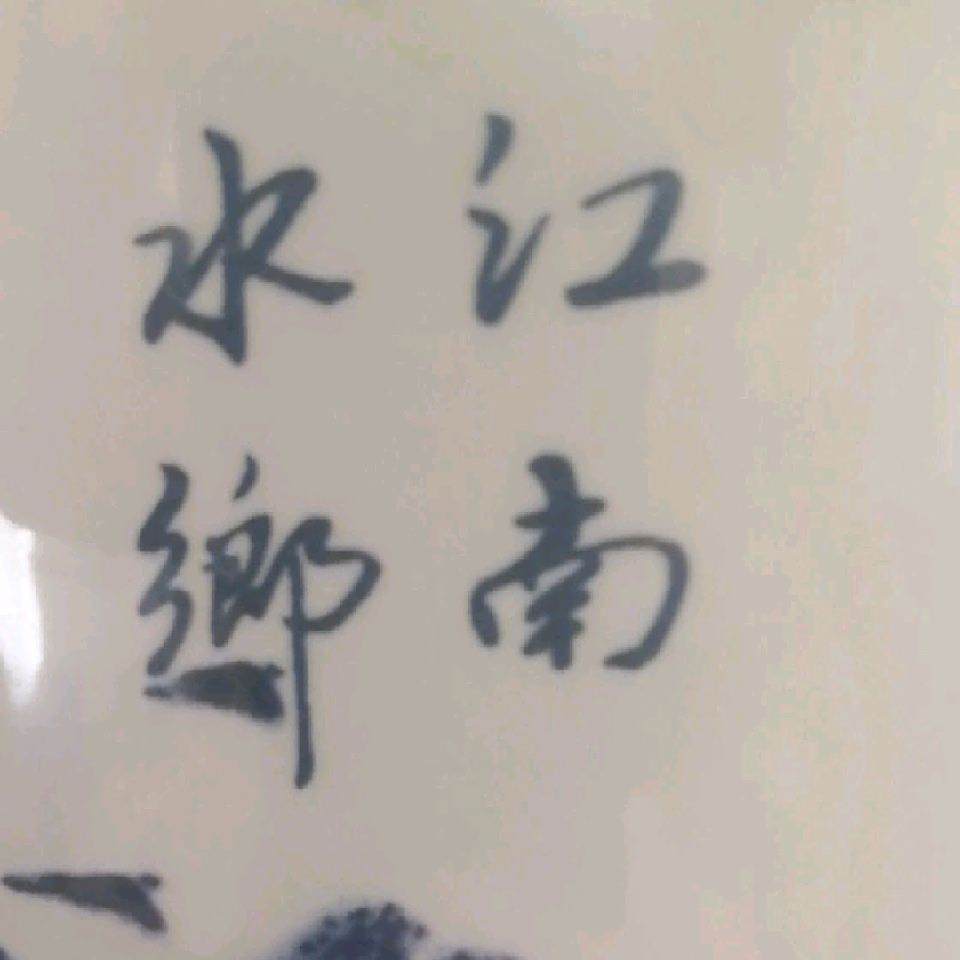 江南
水鄉